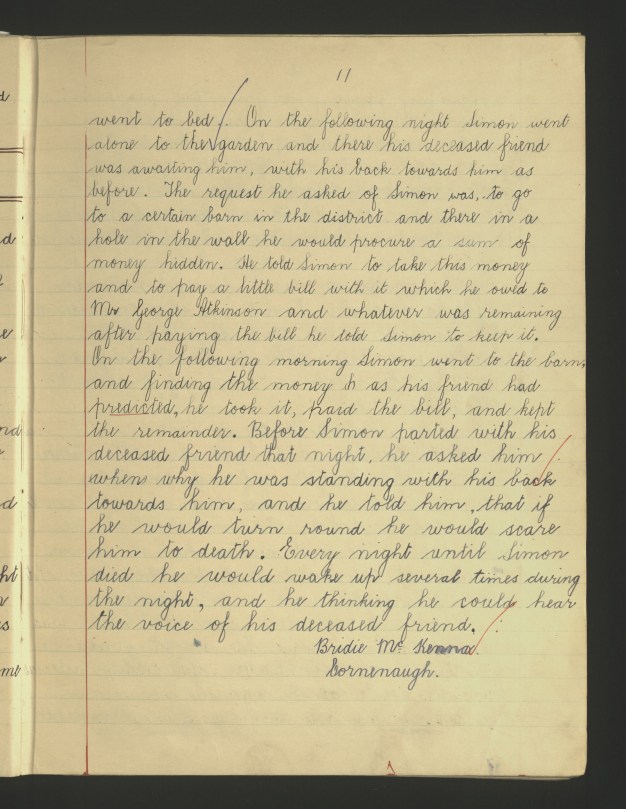 11
went to bed. On the following night Simon went
alone to the garden and there his deceased friend
was awaiting him, with his back towards him as
before. The request he asked of Simon was, to go
to a certain barn in the district and there in a
hole in the wall he would procure a sum of
money hidden. He told Simon to take this money
and to pay a little bill with it which he owed to
Mr George Atkinson and whatever was remaining
after paying the bill he told Simon to keep it.
On the following morning Simon went to the barn,
and finding the money as his friend had
predicted, he took it, paid the bill, and kept
the remainder. Before Simon parted with his
deceased friend that night, he asked him
when why he was standing with his back
towards him, and he told him, that if
he would turn round he would scare
him to death. Every night until Simon
died he would wake up several times during
the night, and he thinking he could hear
the voice of his deceased friend.
Bridie Mc Kenna.
Gornenaugh.